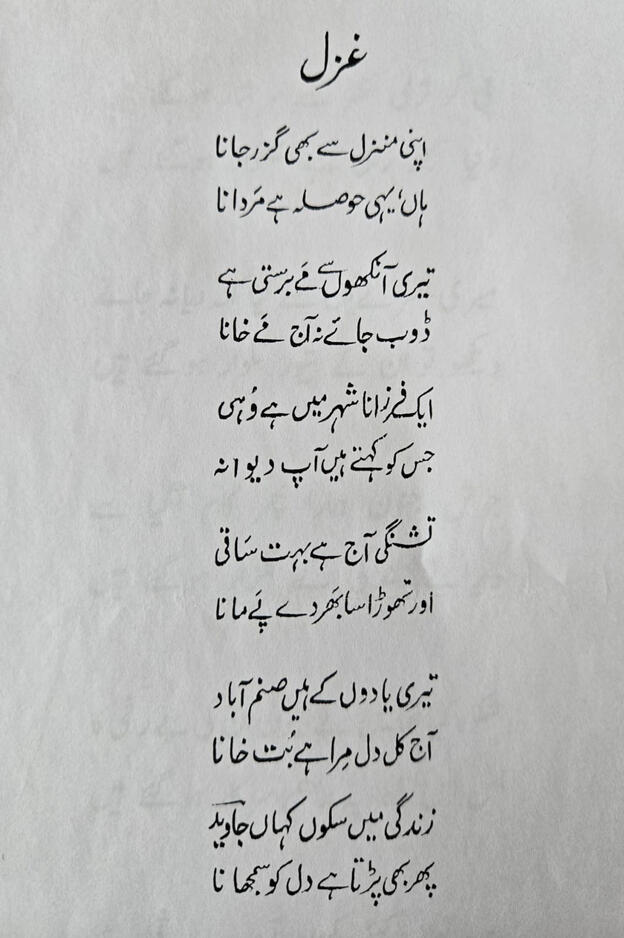 غزل
اپنی منزل سے بھی گزر جانا
ہاں، یہی حوصلہ ہے مَردانا
تیری آنکھوں سے مَے برستی ہے
ڈوب جائے نہ آج مَے خانا
ایک فرزانا شہر میں ہے وُہی
جس کو کہتے ہیں آپ دیوانہ
تشنگی آج ہے بہت سَاقی
اور تھوڑا سا بھَر دے پَے مانا
تیری یادوں کے ہیں صنم آباد
آج کل دل مِرا ہے بُت خانا
زندگی میں سکوں کہاں جاوید
پھر بھی پڑتا ہے دل کو سمجھانا